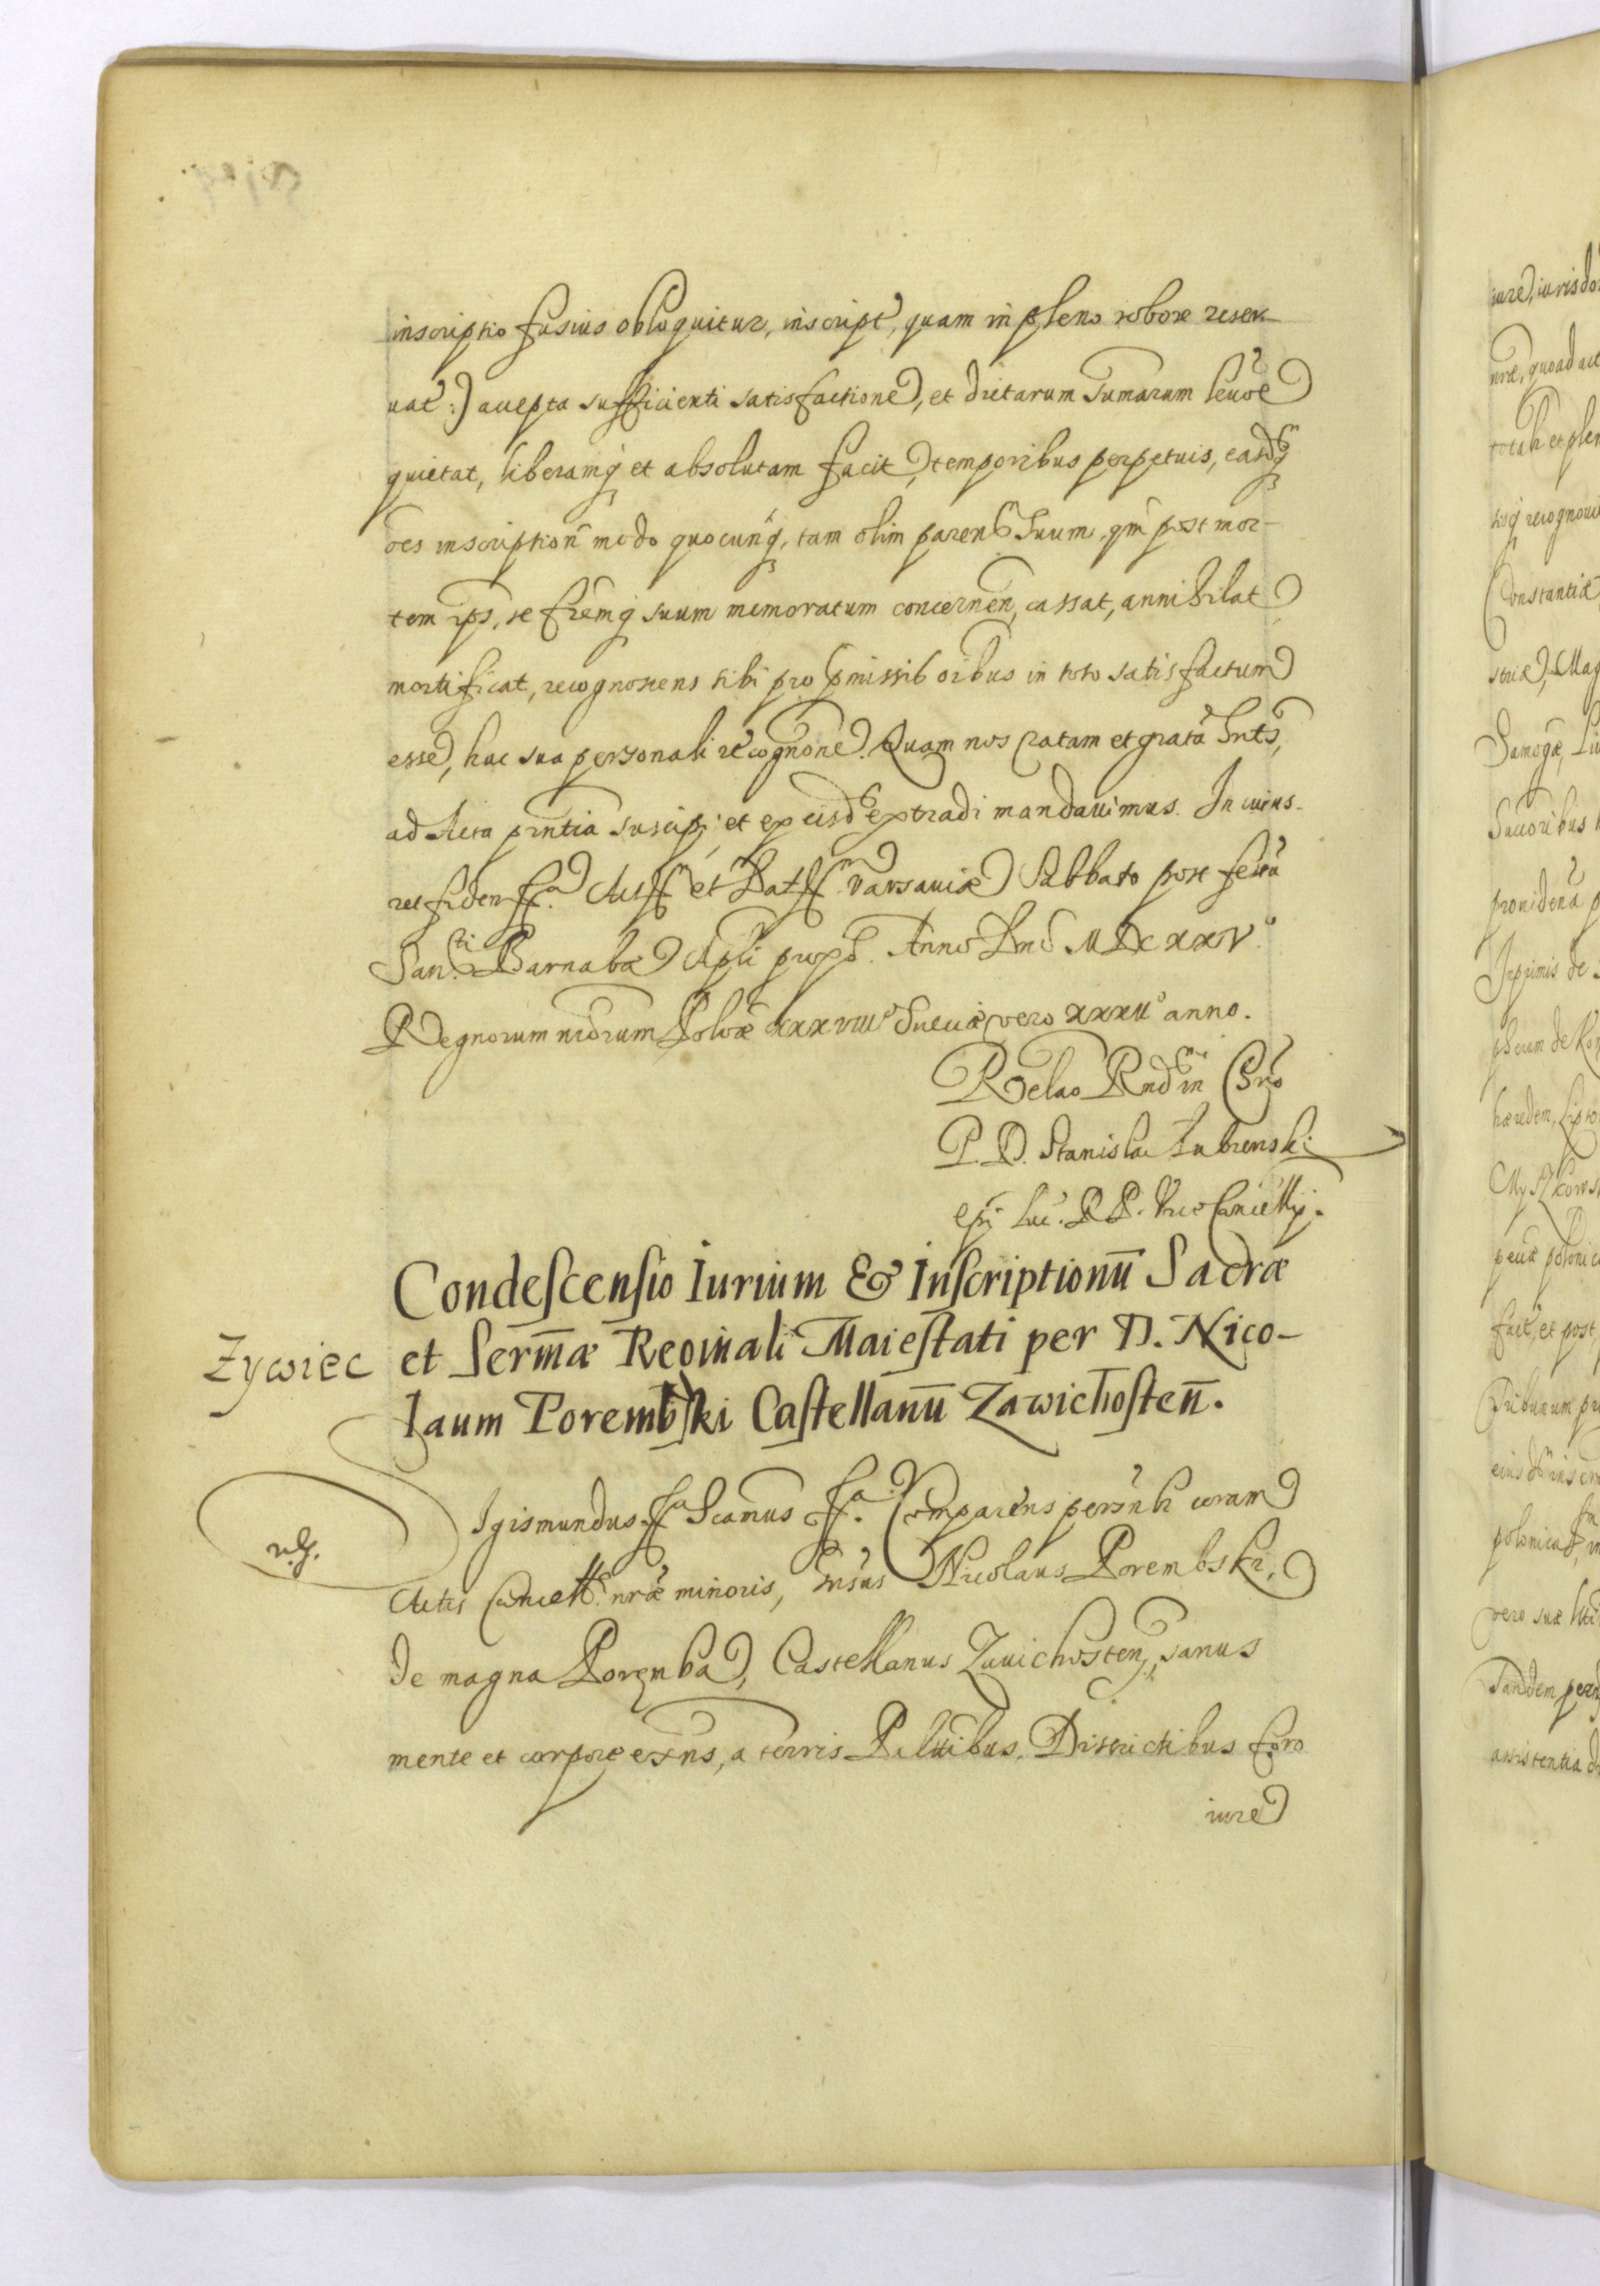 inscriptio fusius obloquitur, inscript, quam in pleno robore reser-
uat:) accepta sufficienti satisfactione, et dictarum sumarum leuõe
quietat, liberamq et absolutam facit, temporibus perpetuis, easdq
oẽs inscription modo quocunq, tam olim parent suum, qm post mor-
tem ips, se frẽmq suum memoratum concernen, cassat, annihilat
mortificat, recognoscens sibi pro pmissib oibus in toto satisfactum
esse, hac sua personali recognõne. Quam nos ratam et gratã hntes,
ad Acta pñtia suscipi, et ex eisd extradi mandauimus. In cuius
rei fidem ssa. Act et Dat Varsauiæ Sabbato post festũ
Sancti Barnabæ Apli prox. Anno Dni MDCXXV.o
Regnorum nrõrum Polõæ XXXVIII Sueciæ vero XXXII anno.
Relao Rndi in Chrõ
P. D. Stanislai Lubienski
Epi Luc. R P. Vice Cancellrij.
Condescensio Iurium & Inscriptionũ Sacræ
et Sermæ Reginali Maiestati per D. Nico-
laum Porembski Castellanũ Zawichosteñ.
Zywiec
Sigismundus ssa Scamus ssa. Comparens persnlr coram
Actis Cancell nræ minoris, Gnsus Nicolaus Porembski,
De magna Poremba, Castellanus Zauichosten, sanus
mente et corpore exns, a terris Pallibus, Districtibus foro
iure